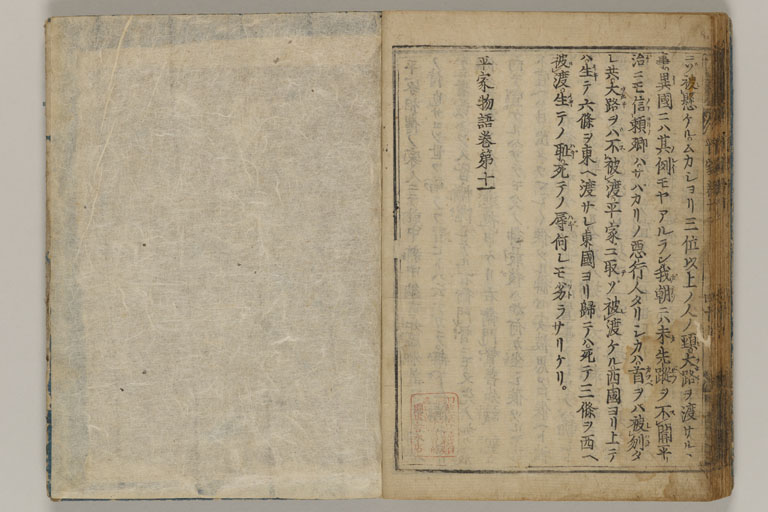 ニソ被懸ケルムカシヨリ三位以上ノ人ノ頭大路ヲ渡サルヽ
事異國ニハ其例モヤアルラン我朝ニハ未先蹤ヲ不聞平
治ニモ信頼卿ハサバカリノ悪行人タリシカハ首ヲハ被刎タ
レ共大路ヲハ不被渡平家ニ取ソ被渡ケル西國ヨリ上テ
ハ生テ六條ヲ東ヘ渡サレ東國ヨリ歸テハ死テ三條ヲ西ヘ
被渡生テノ恥死テノ辱何レモ劣ラサリケリ。
平家物語巻第十一